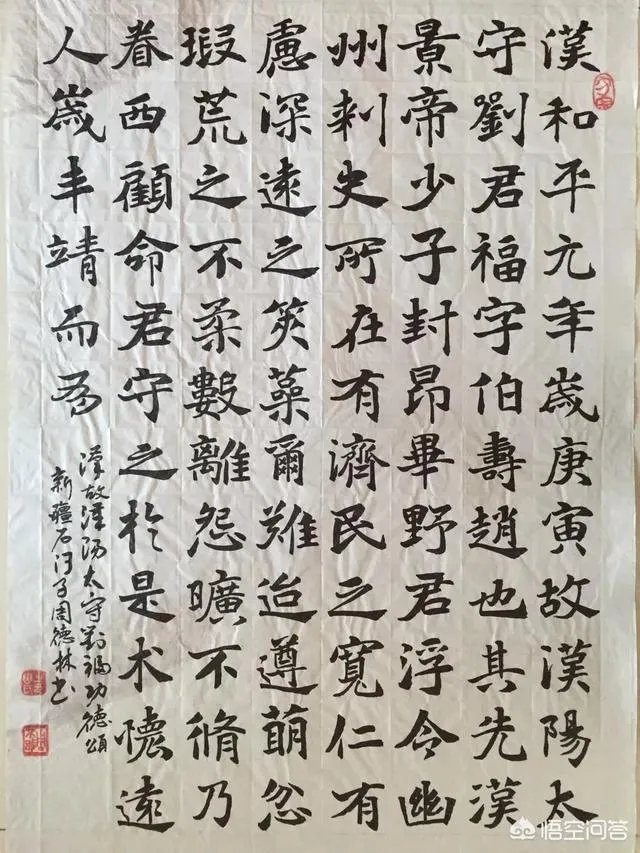 漢和平元年歲庚寅故漢陽太
守劉君福字伯壽趙也其先漢
景帝少子封昂畢野君浮令幽
州刺史所在有濟民之寬仁有
慮深遠之筴爾雖迨遵萠忿
瑕荒之不柔數離怨曠不脩乃
眷西顧命君守之於是术懷遠
人歲丰靖而為
漢故漢陽太守劉福功德頌
新疆石河子周德林书
悟空问答